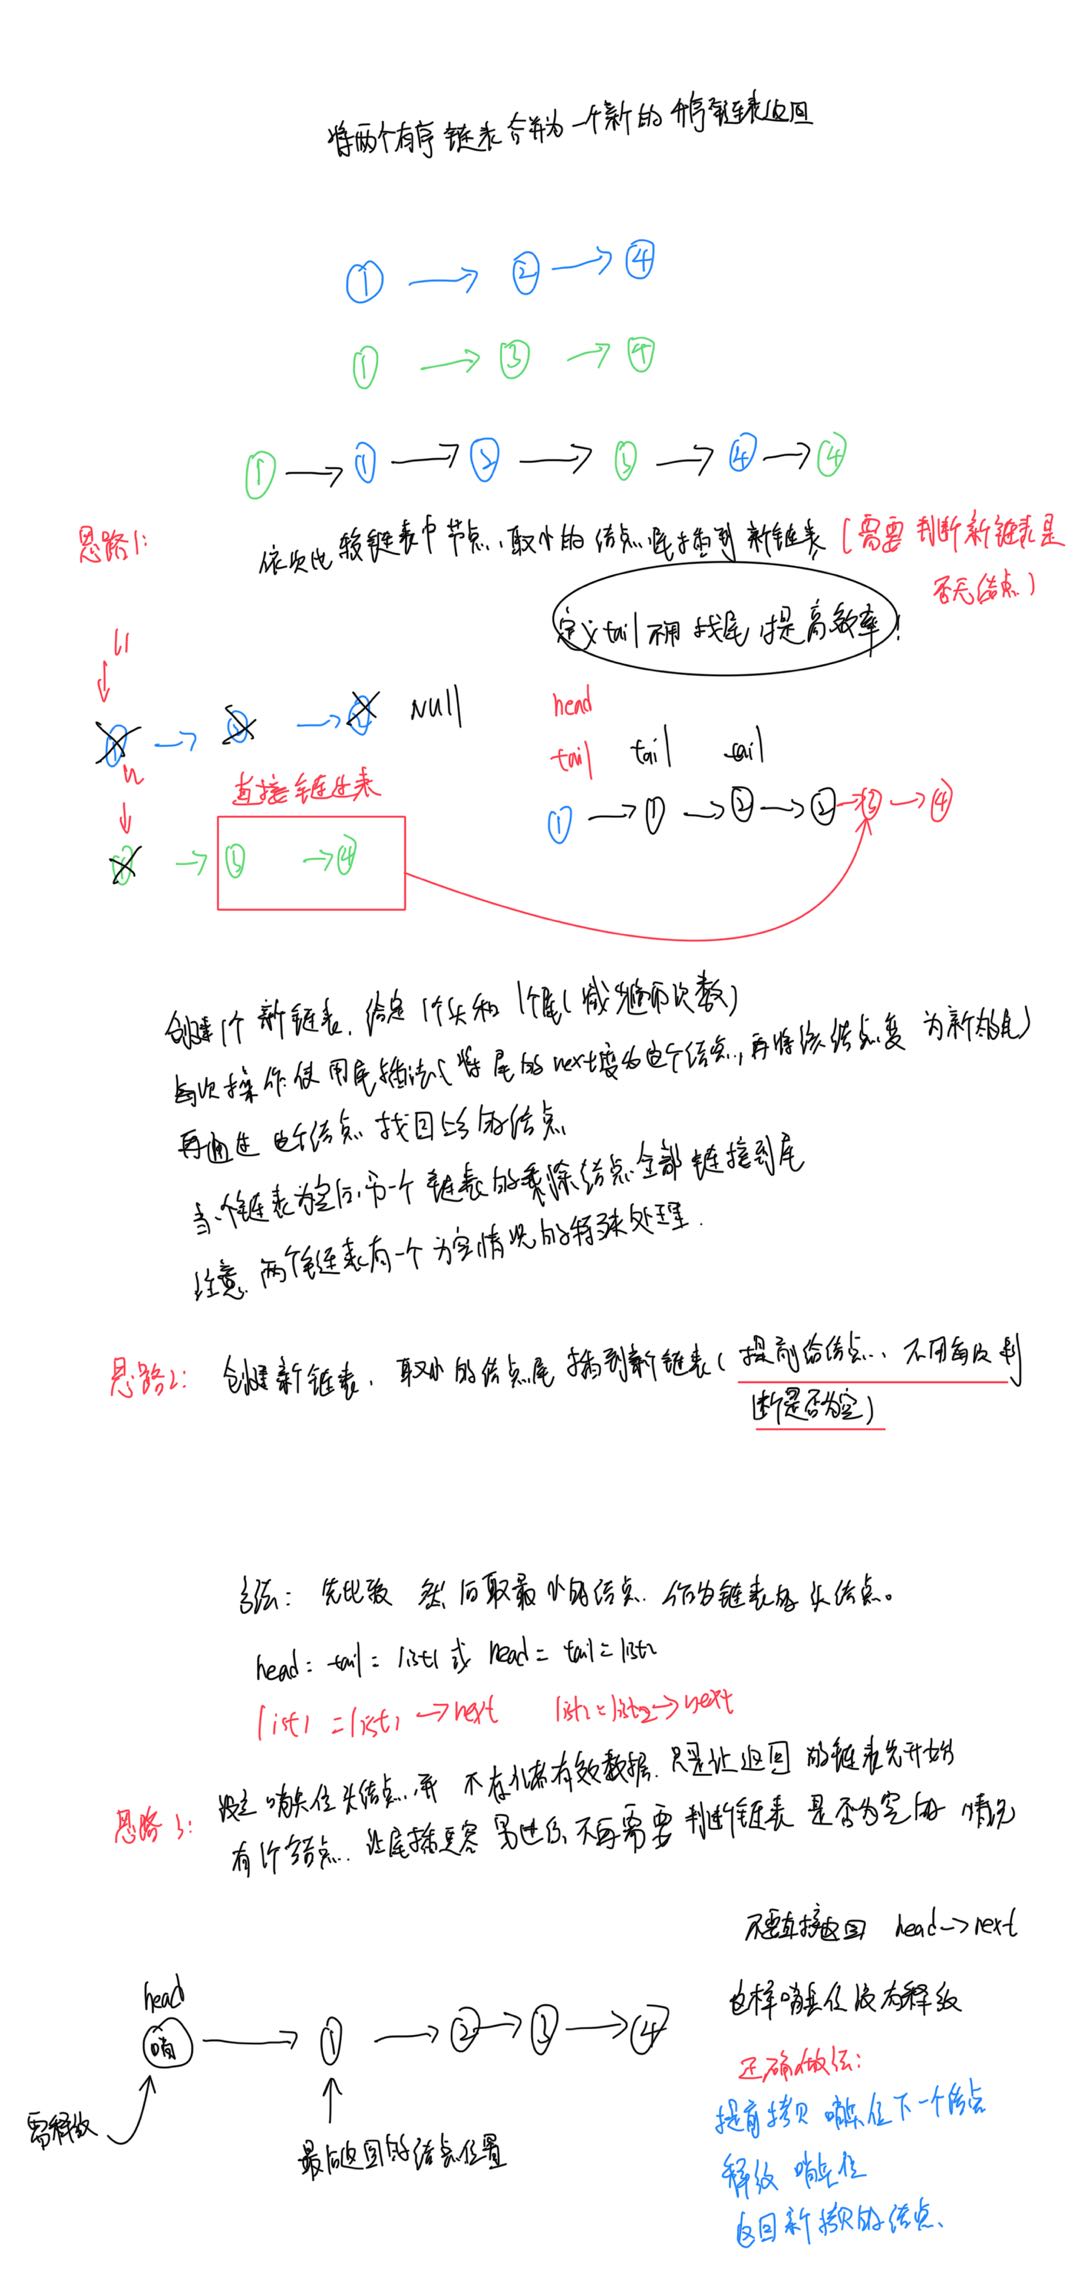 将两个有序链表合并为一个新的升序链表返回
① → ② → ④
① → ③ → ④
① → ① → ② → ③ → ④ → ④
思路1: 依次比较链表中节点,取小的结点尾插到新链表 (需要判断新链表是
否无结点)
定义tail不用找尾,提高效率!
l1
head
① → ② → NULL
tail tail tail
直接链过来
① → ① → ② → ② → ③ → ④
① → ③ → ④
创建1个新链表,给定1个头和1个尾(减少遍历次数)
每次操作使用尾插法(将尾的next变为这个结点,再将该结点变为新的尾)
再通过这个结点找回之后的结点
当一个链表为空后,另一个链表的剩余结点全部链接到尾
注意,两个链表有一个为空情况的特殊处理.
思路2: 创建新链表,取小的结点尾插到新链表(提前给结点,不用每次判
断是否为空)
方法: 先比较 然后取最小的结点 作为链表的头结点。
head = tail = list1 或 head = tail = list2
list1 = list1 → next list2 = list2 → next
思路3: 设立哨兵位头结点,并不存储有效数据,只是让返回的链表先开始
有1个结点,让尾插更容易进行,不再需要判断链表是否为空的情况
不要直接返回 head → next
这样哨兵位没有释放
head
哨 → ① → ② → ③ → ④
正确做法:
提前拷贝哨兵位下一个结点
需释放
最后返回的结点位置
释放哨兵位
返回新拷贝的结点.